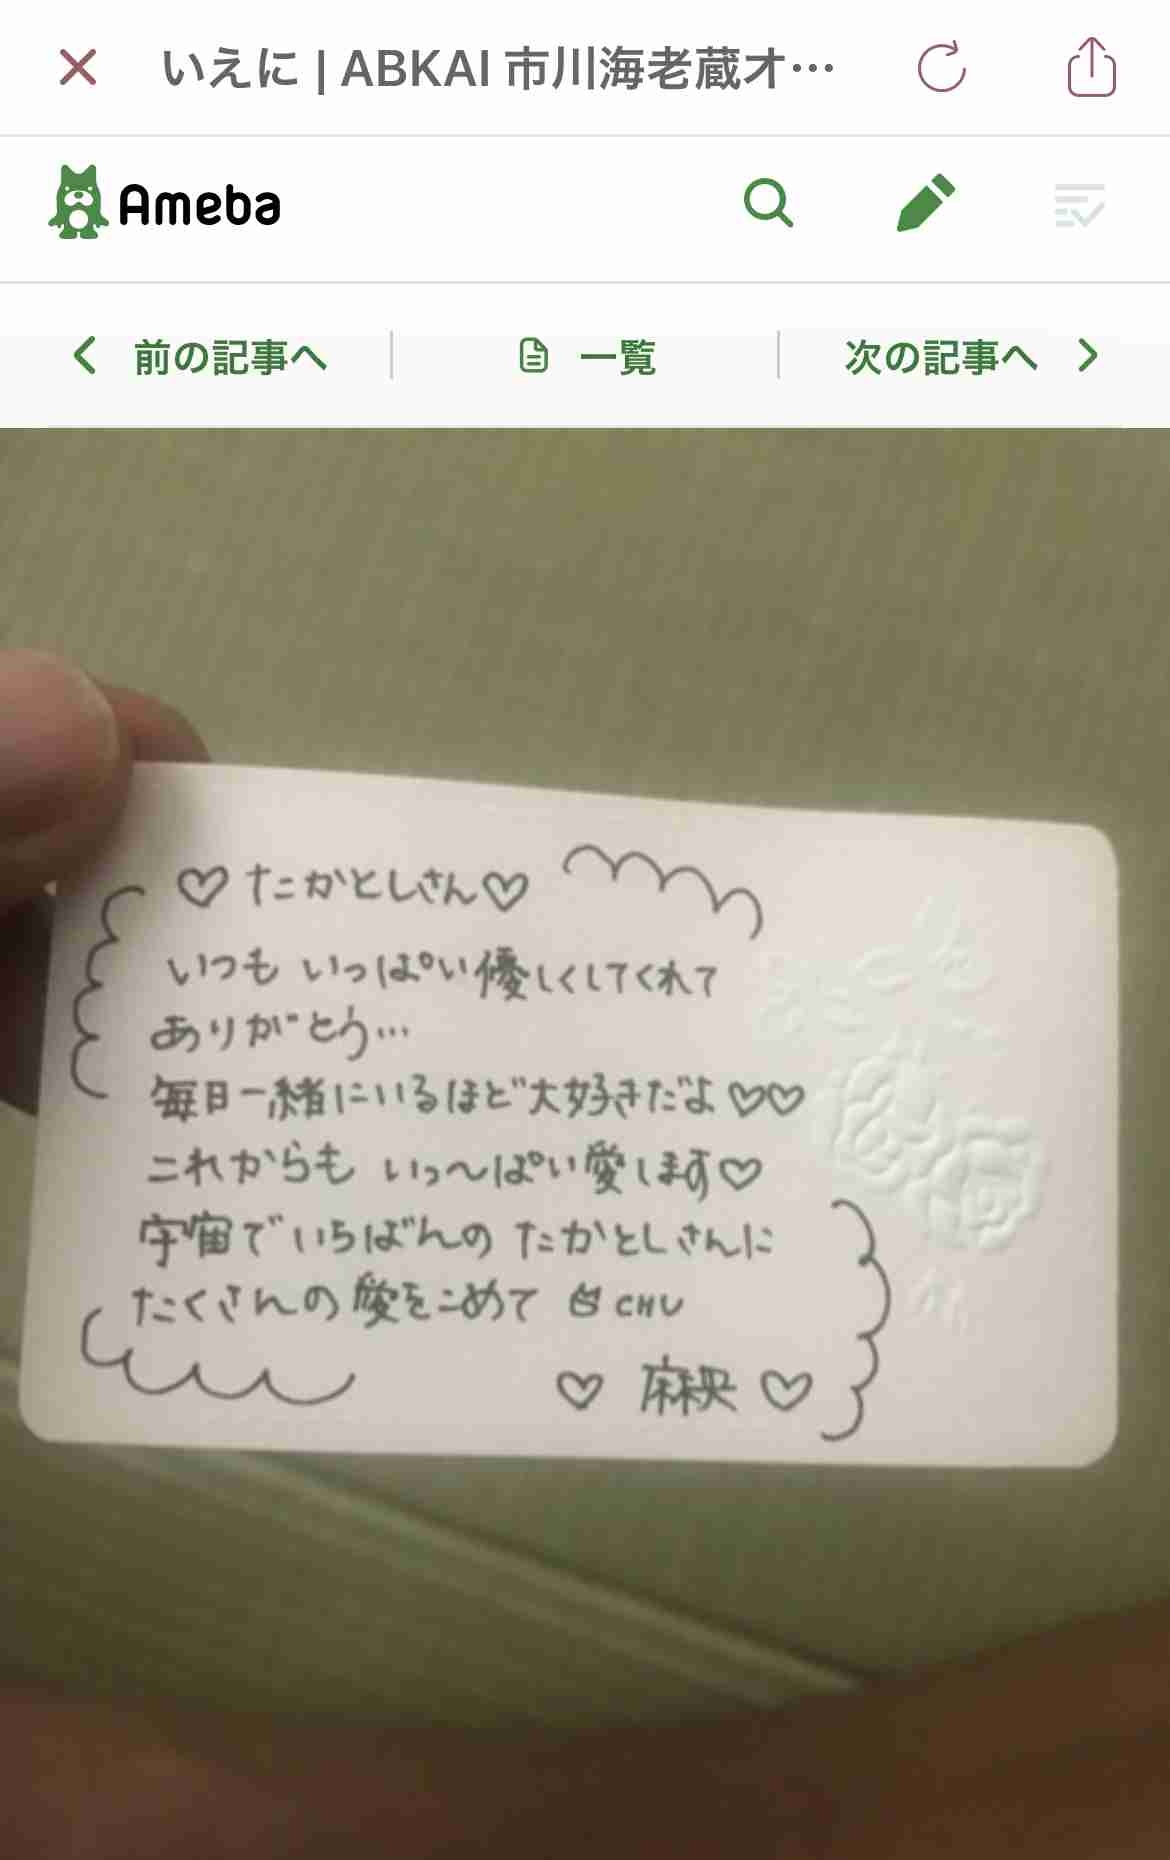 いえに | ABKAI 市川海老蔵オ…
Ameba
前の記事へ
一覧
次の記事へ
♡たかとしさん♡
いつも いっぱい優しくしてくれて
ありがとう…
毎日一緒にいるほど大好きだよ♡♡
これからも いっ〜ぱい愛します♡
宇宙でいちばんの たかとしさんに
たくさんの愛をこめて CHU
♡ 麻央 ♡